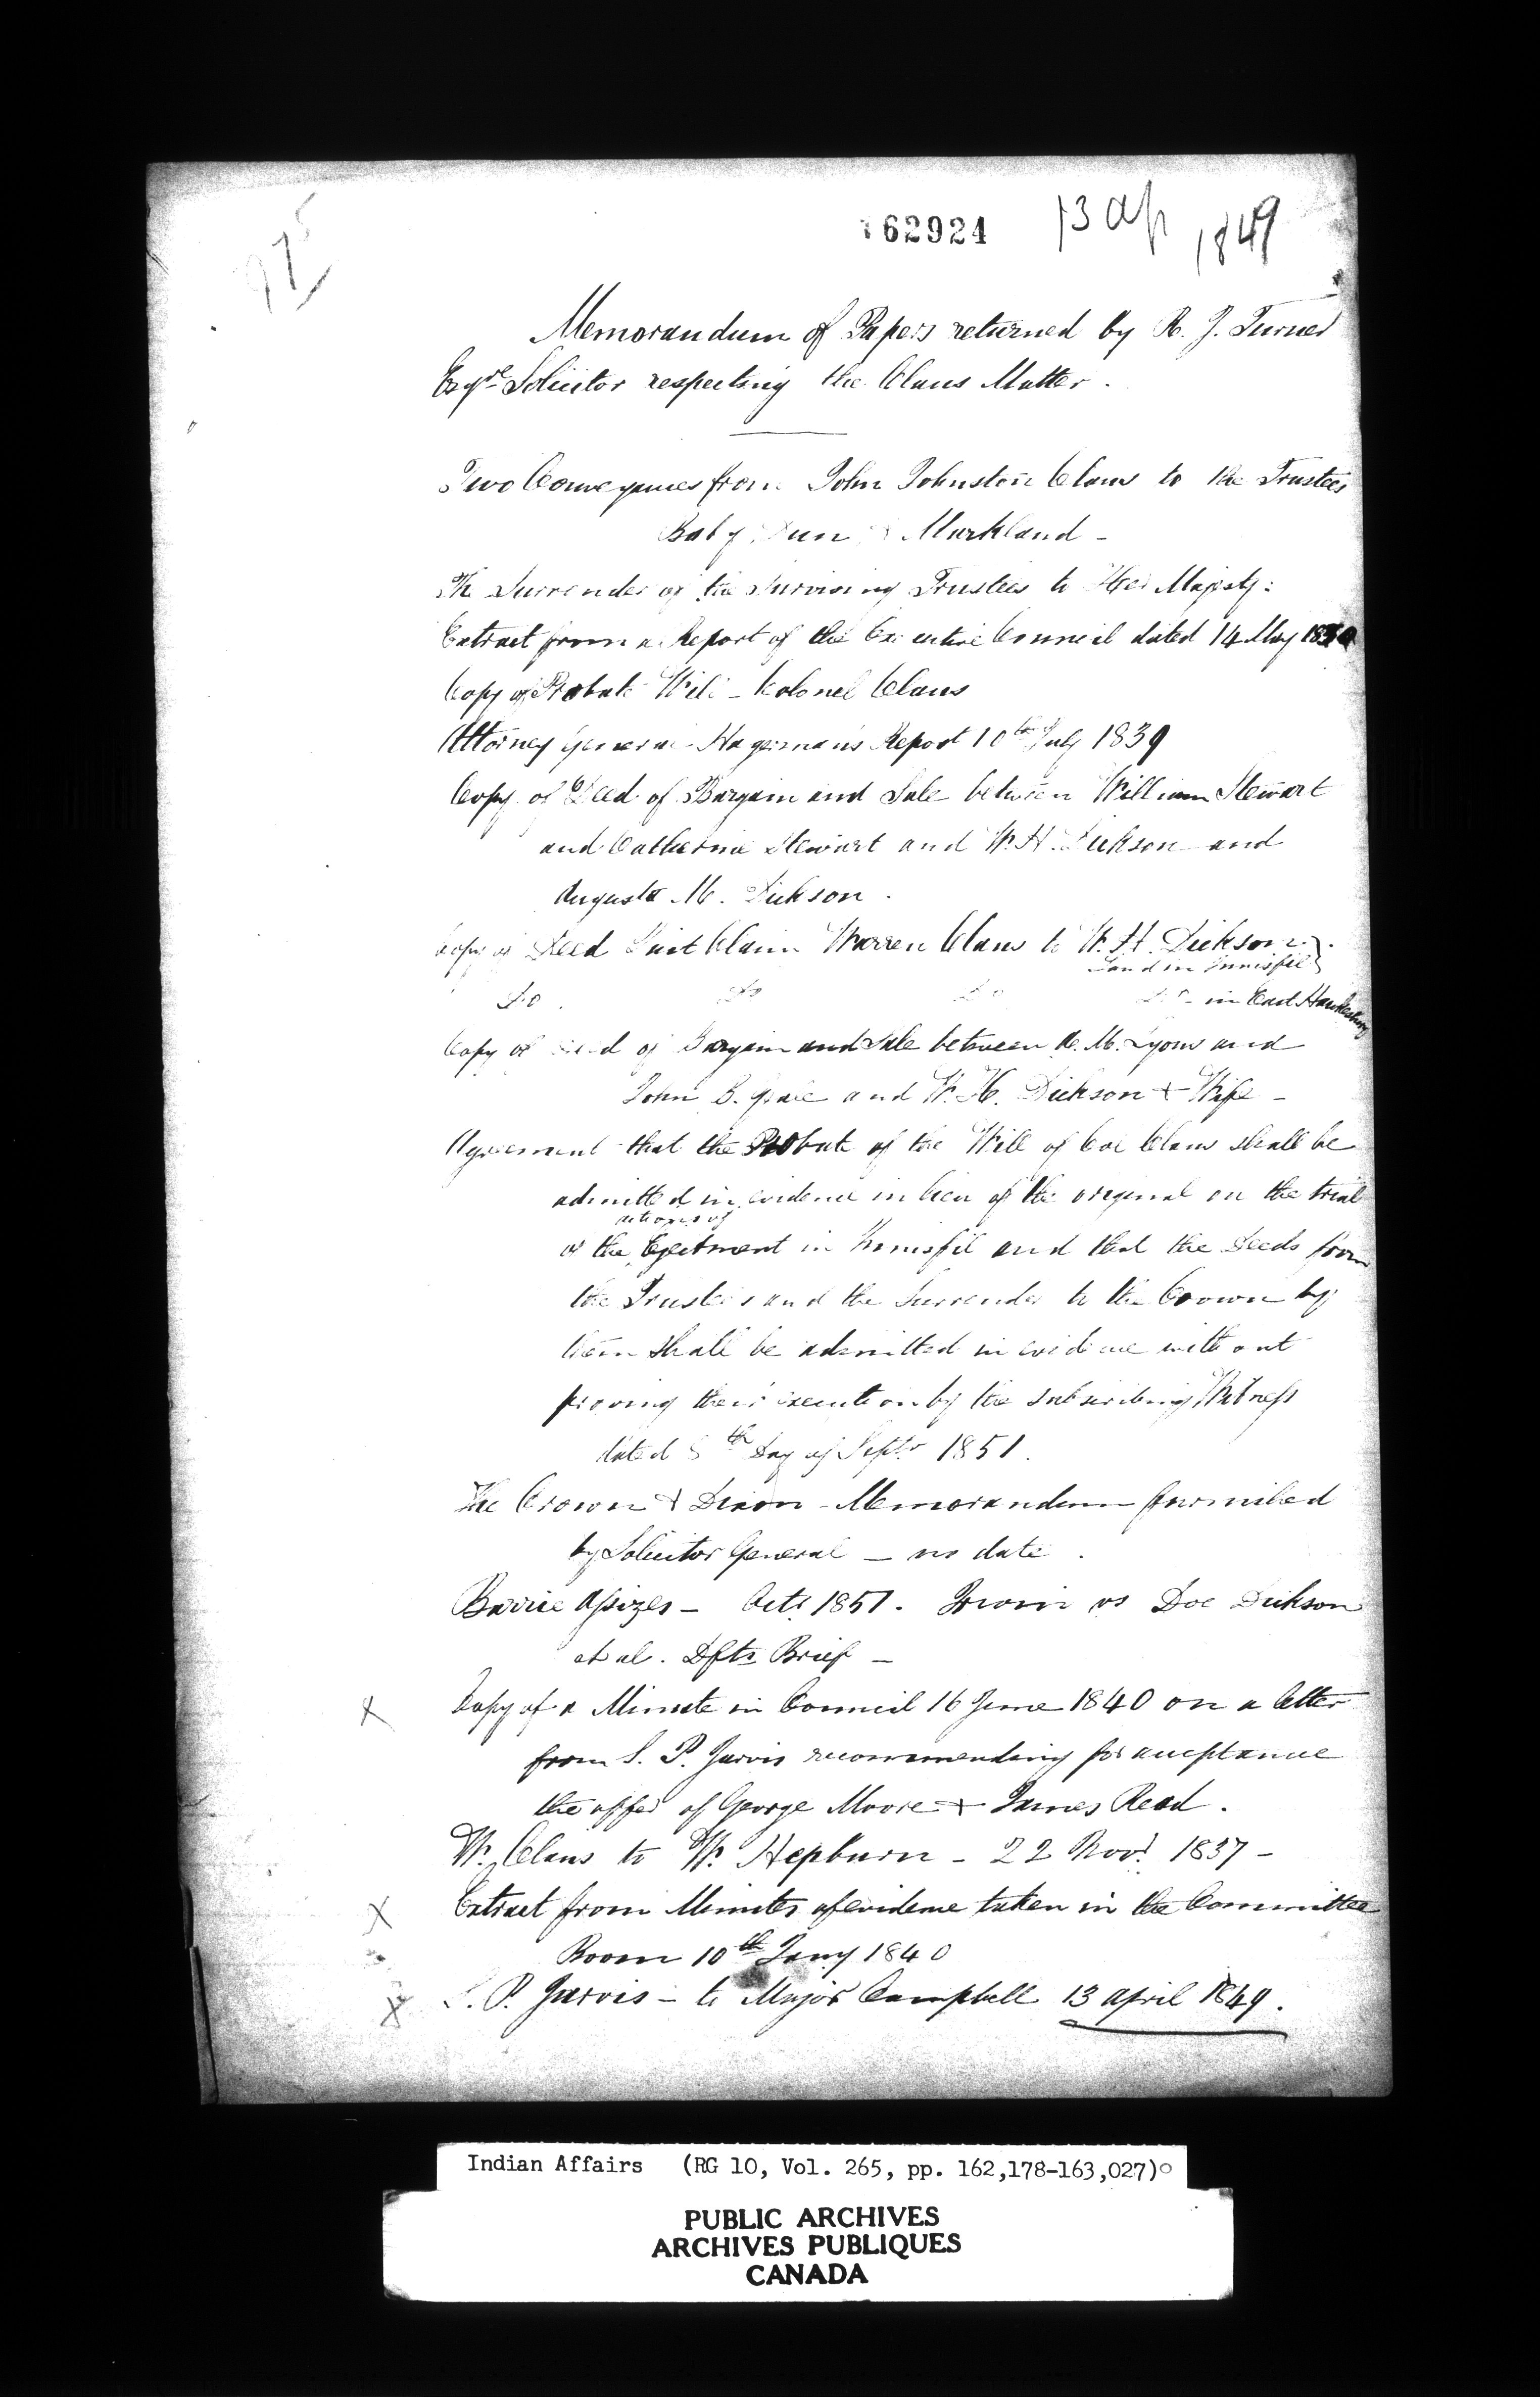 162924 13 Ap 1849
Memorandum of Papers returned by R. J. Turner
Esqre. Solicitor respecting the Claus Matter.
Two Conveyances from John Johnston Claus to the Trustees
Baby Dun & Markland -
The Surrender of the Surviving Trustees to Her Majesty:
Extract from a Report of the Executive Council dated 14 May 1840
Copy of Probate Will - Colonel Claus
Attorney General Hagerman's Report 10th July 1839
Copy of Deed of Bargain and Sale between William Stewart
and Catherine Stewart and W. H. Dickson and
Augusta M. Dickson.
Copy of Deed Quit Claim Warren Claus to W. H. Dickson
Land in Innisfil
Do. Do Do Do - in East Hawkesbury
Copy of Deed of Bargain and Sale between R. M. Lyons and
John B. and W. H. Dickson & Wife -
Agreement that the Probate of the Will of Col Claus shall be
admitted in evidence in lieu of the original on the trial
actions of
of the Ejectment in Innisfil and that the Deeds from
the Trustees and the Surrender to the Crown by
them shall be admitted in evidence without
proving their execution by the subscribing Witness
dated 5th Day of Septr 1851.
The Crown & Dixon - Memorandum furnished
by Solicitor General - no date.
Barrie Assizes - Octr 1851. Irwin vs Doe Dickson
et al. Dfts Brief -
X Copy of a Minute in Council 16 June 1840 on a letter
from S. P. Jarvis recommending for acceptance
the offer of George Moore & James Read.
W. Claus to W. Hepburn - 22 Novr. 1837 -
X Extract from Minutes of evidence taken in the Committee
Room 10th Jany 1840
X S. P. Jarvis - to Major Campbell 13 april 1849.
Indian Affairs (RG 10, Vol. 265, pp. 162,178-163,027)
PUBLIC ARCHIVES
ARCHIVES PUBLIQUES
CANADA